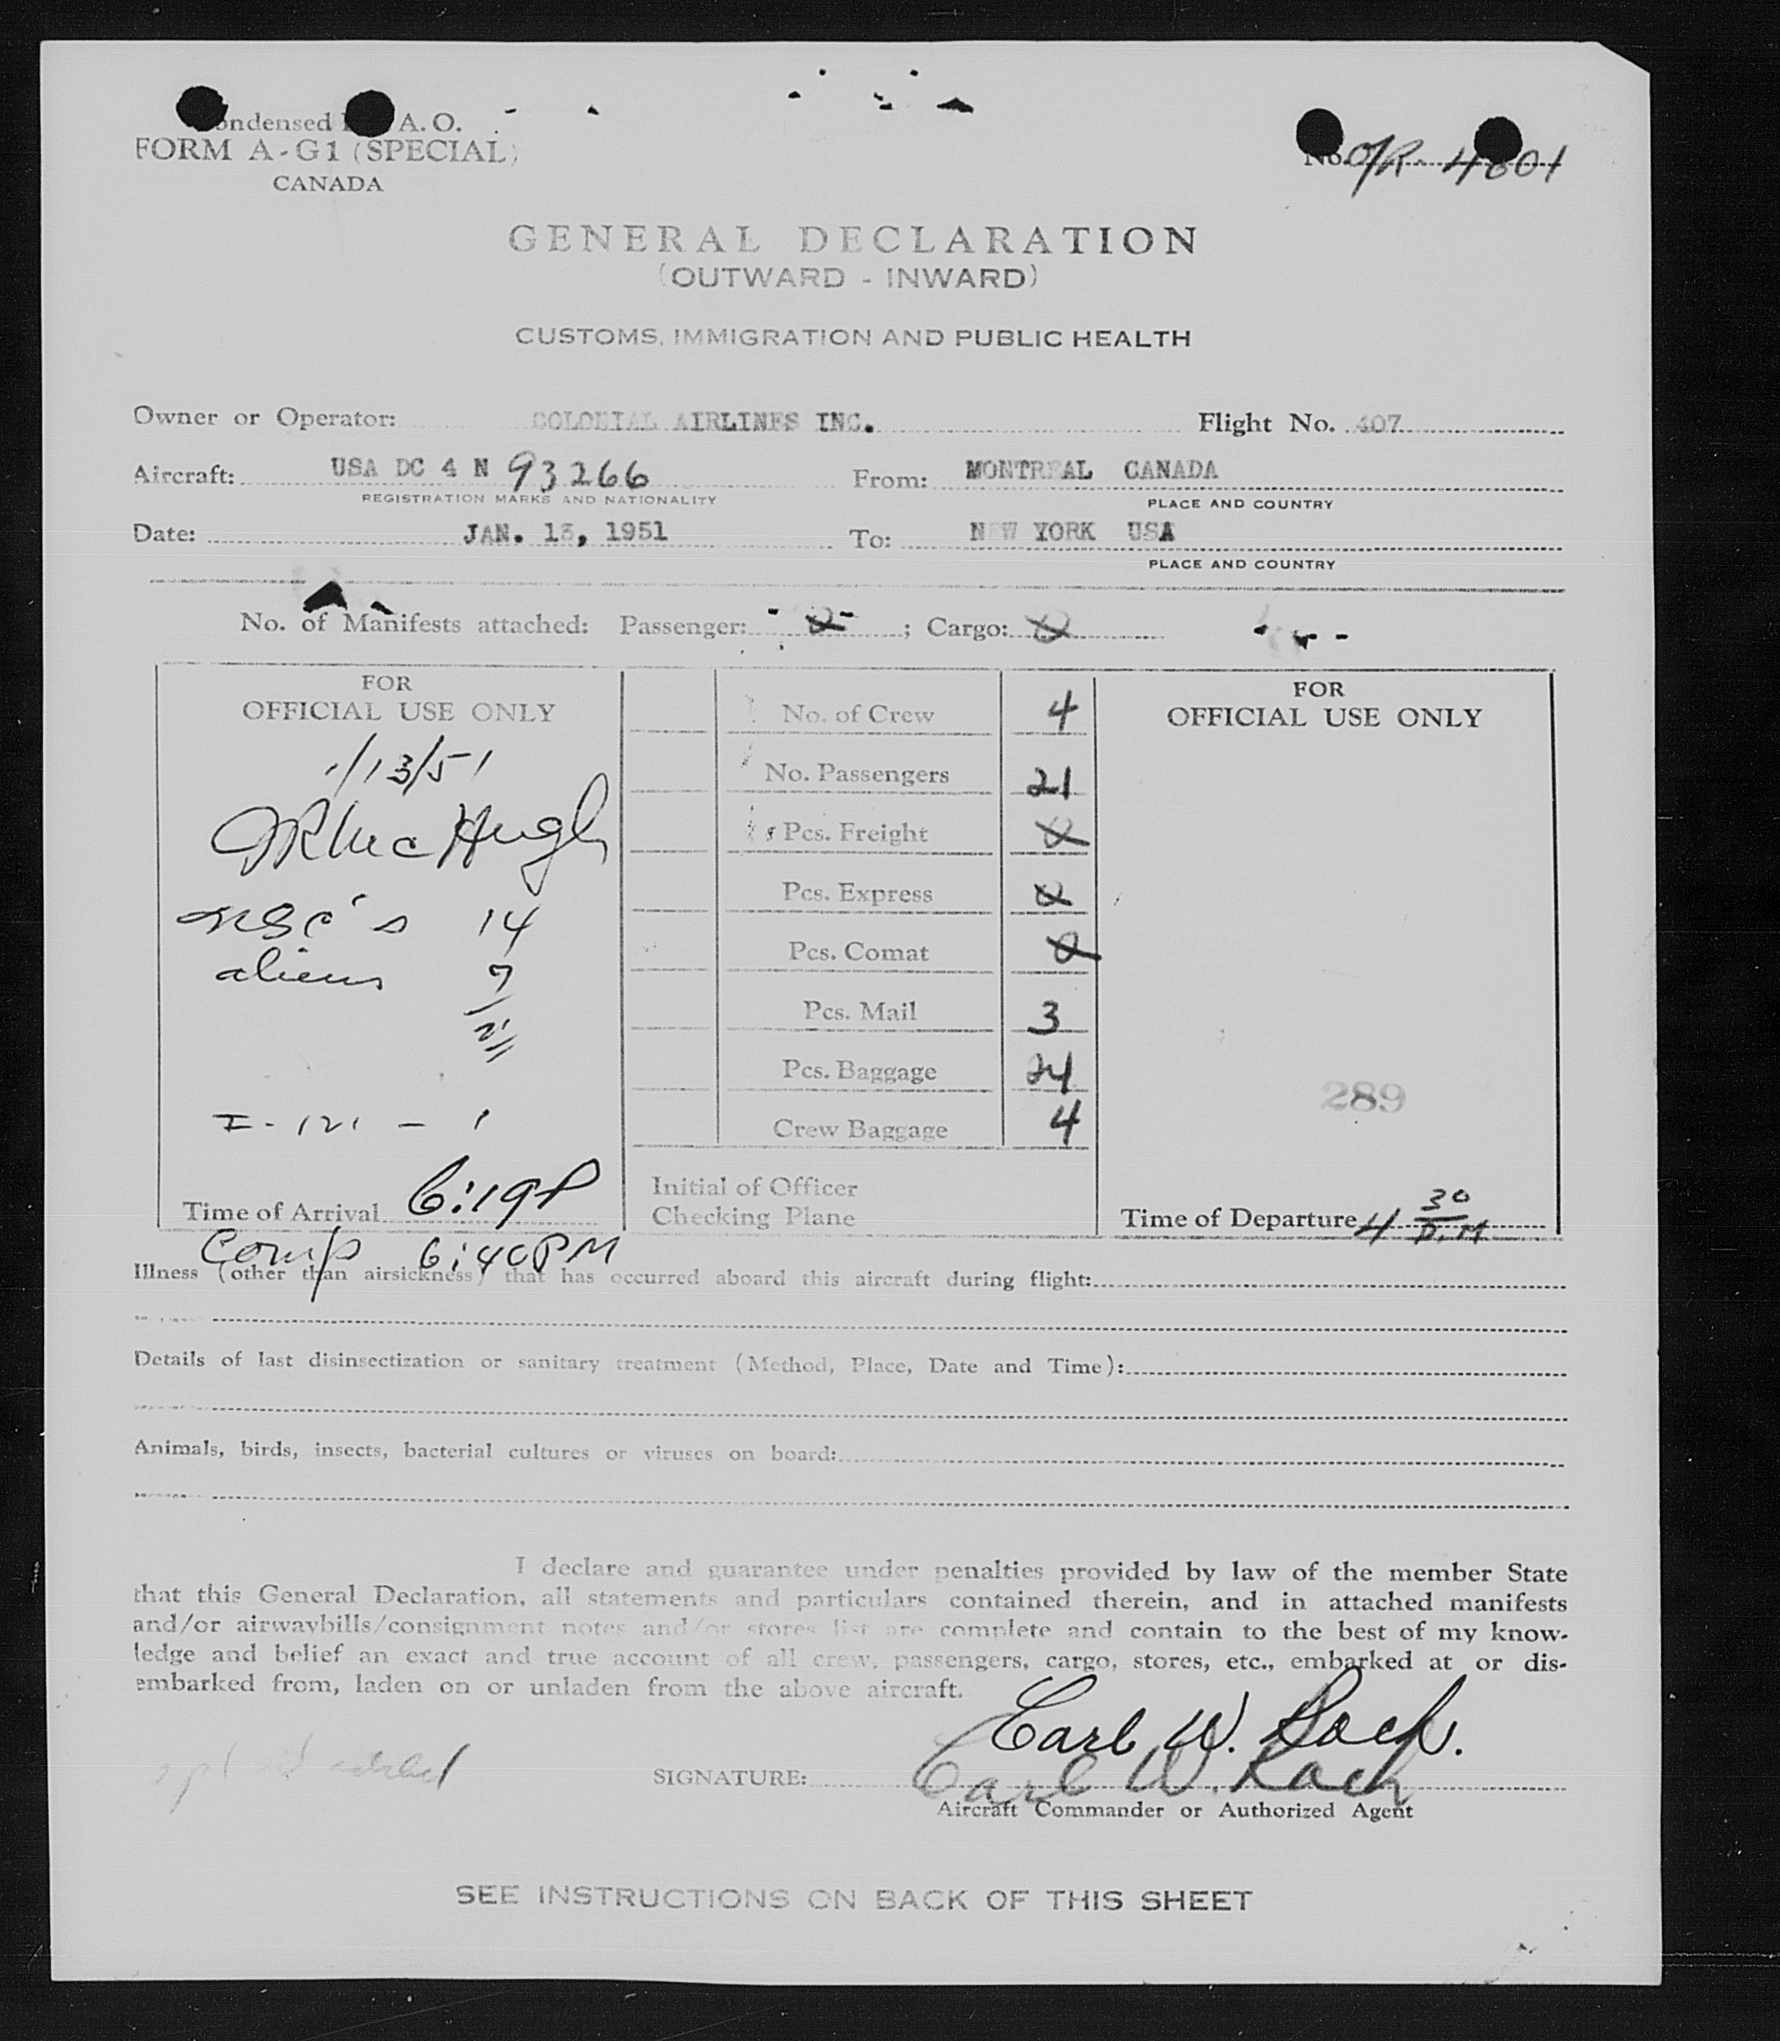 Condensed A. O.
FORM A-G1 (SPECIAL)
CANADA
No. O/R 4801
GENERAL DECLARATION
(OUTWARD - INWARD)
CUSTOMS, IMMIGRATION AND PUBLIC HEALTH
Owner or Operator: COLONIAL AIRLINES INC. Flight No. 407
Aircraft: USA DC 4 N 93266 From: MONTREAL CANADA
REGISTRATION MARKS AND NATIONALITY PLACE AND COUNTRY
Date: JAN. 13, 1951 To: NEW YORK USA
PLACE AND COUNTRY
No. of Manifests attached: Passenger: 0 ; Cargo: 0
FOR
OFFICIAL USE ONLY
1/13/51
14
aliens 7
21
I-121 - 1
Time of Arrival 6:19P
Comp 6:40PM
No. of Crew 4
No. Passengers 21
Pcs. Freight 0
Pcs. Express 0
Pcs. Comat 0
Pcs. Mail 3
Pcs. Baggage 24
Crew Baggage 4
Initial of Officer
Checking Plane
FOR
OFFICIAL USE ONLY
289
Time of Departure 4 30 P.M
Illness (other than airsickness) that has occurred aboard this aircraft during flight:
Details of last disinsectization or sanitary treatment (Method, Place, Date and Time):
Animals, birds, insects, bacterial cultures or viruses on board:
I declare and guarantee under penalties provided by law of the member State
that this General Declaration, all statements and particulars contained therein, and in attached manifests
and/or airwaybills/consignment notes and/or stores list are complete and contain to the best of my know-
ledge and belief an exact and true account of all crew, passengers, cargo, stores, etc., embarked at or dis-
embarked from, laden on or unladen from the above aircraft.
Earl W. Roch.
SIGNATURE: Earl W. Roch
Aircraft Commander or Authorized Agent
SEE INSTRUCTIONS ON BACK OF THIS SHEET